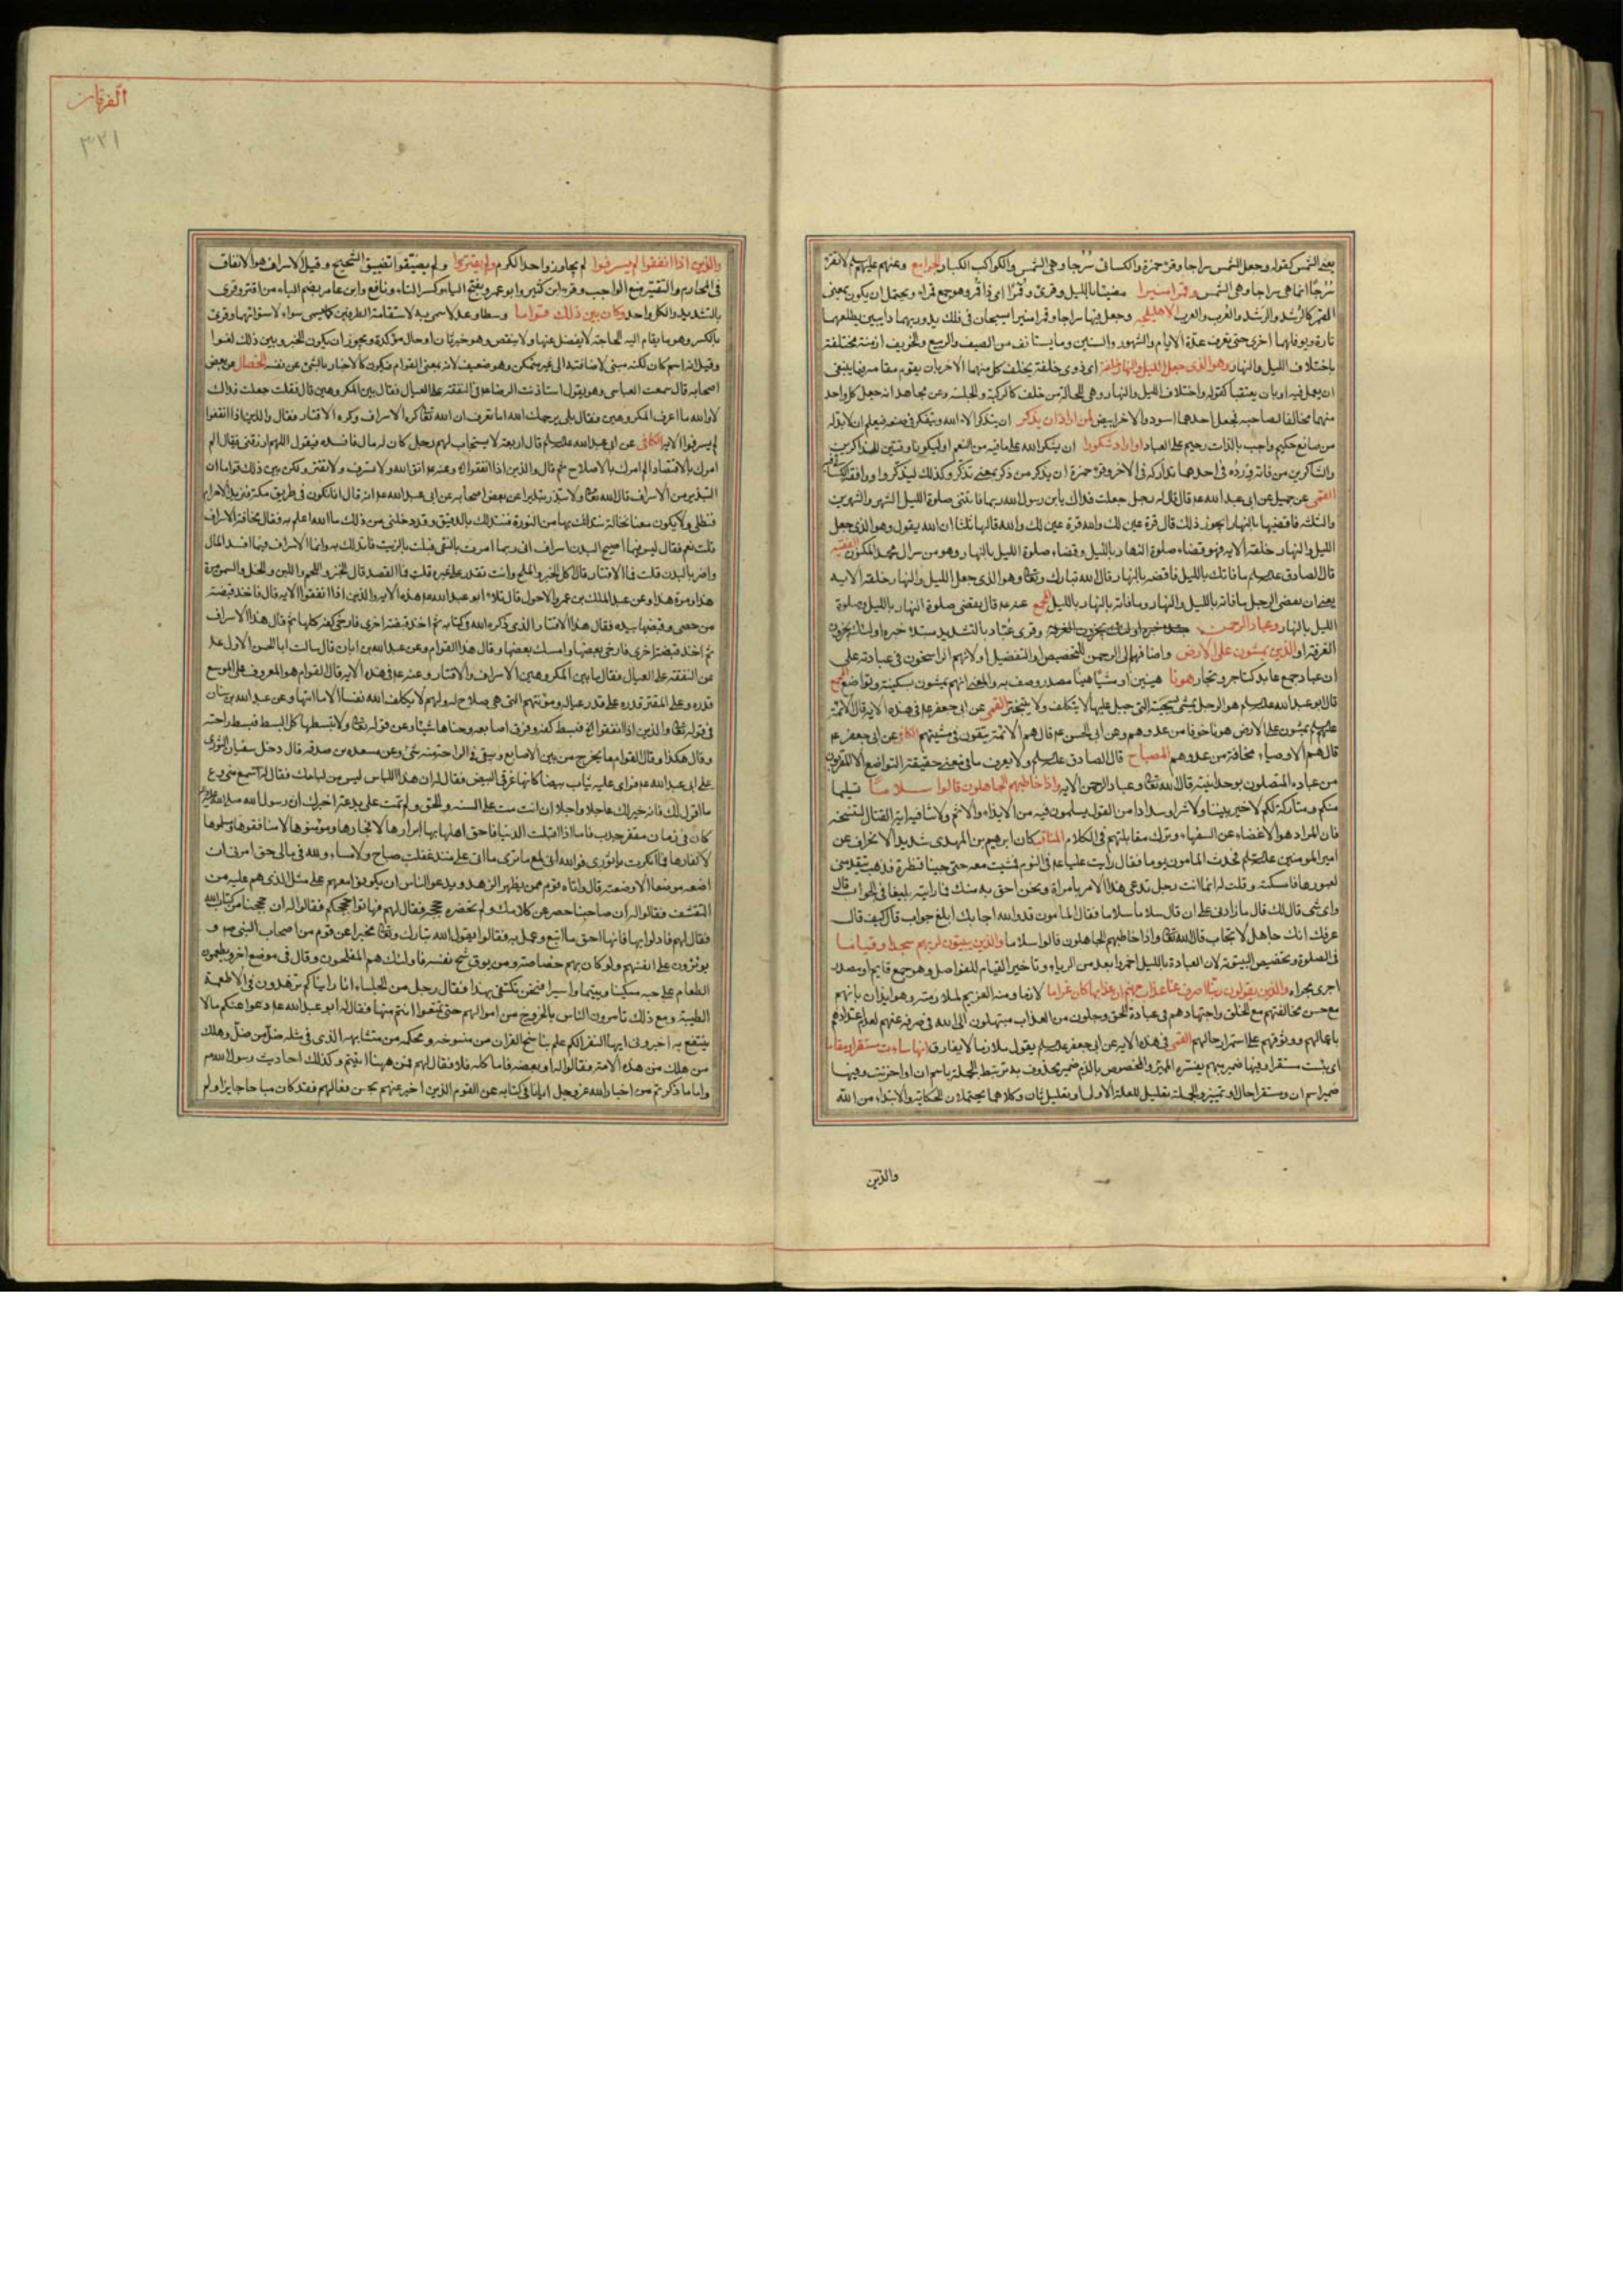 يعنى الشمس كقوله وجعل الشمس سراجا وقرء حمزة والكسائى سُرُجا وهى الشمس والكواكب الكبار الجوامع وعنهم عليهم السلم لا تقرء
سُرُجًا انما هى سراجا وهى الشمس وقمرا منيرا مضيئا بالليل وقرئ وقُمْرًا اى ذا قمر وهو جمع قمراء ويحتمل ان يكون بمعنى
القمر كالرُشد والرَشد والعُرب والعرب الاهليلجه وجعل فيها سراجا وقمرا منيرا يسبحان فى فلك يدور بهما دايبين يطلعهما
تارة ويوفلهما اخرى حتى يعرف عدة الايام والشهور والسنين وما يستانف من الصيف والربيع والخريف ازمنة مختلفة
باختلاف الليل والنهار وهو الذى جعل الليل والنهار خلفة اى ذوى خلفة يخلف كل منهما الاخر بان يقوم مقامه فيما ينبغى
ان يعمل فيه او بان يعتقبا كقوله واختلاف الليل والنهار وهى للحالة من خلف كالركبة والجلسة وعن مجاهد انه جعل كل واحد
منهما مخالفا لصاحبه فجعل احدهما اسود والاخر ابيض لمن اراد ان يذكر ان يتذكر الاء الله ويتفكر فى صنعه فيعلم ان لا بد له
من صانع حكيم واجب بالذات رحيم على العباد او اراد شكورا ان يشكر الله على ما فيه من النعم او ليكونا وقتين للذاكرين
والشاكرين من فاته وِرْدُه فى احدهما تداركه فى الاخر وقرء حمزة ان يذكر من ذكر بمعنى تذكر وكذلك ليذكروا ووافقه الكسائى
القمى عن جميل عن ابى عبد الله ع قال قال له رجل جعلت فداك يابن رسول الله ربما فاتتنى صلوة الليل الشهر والشهرين
والثلثة فاقضيها بالنهار ايجوز ذلك قال قرة عين لك والله قرة عين لك والله قالها ثلثا ان الله يقول وهو الذى جعل
الليل والنهار خلفة الايه فهو قضاء صلوة النهار بالليل وقضاء صلوة الليل بالنهار وهو من سر ال محمد المكنون الفقيه
قال الصادق ع ما فاتك بالليل فاقضه بالنهار قال الله تبارك وتعالى وهو الذى جعل الليل والنهار خلفة الايه
يعنى ان يقضى الرجل ما فاته بالليل والنهار وما فاته بالنهار بالليل المجمع عنه ع قال يقضى صلوة النهار بالليل وصلوة
الليل بالنهار وعباد الرحمن مبتدء خبره اولئك يجزون الغرفة وقرئ عُبّاد بالتشديد مبتدء خبره اولئك يجزون
الغرفة او الذين يمشون على الارض واضافهم الى الرحمن للتخصيص والتفضيل او لانهم الراسخون فى عبادته على
ان عباد جمع عابد كتاجر وتجار هونا هينين او مشيًا هينًا مصدر وصف به والمعنى انهم يمشون بسكينة وتواضع المجمع
قال ابو عبد الله ع هو الرجل يمشى بسجيته التى جبل عليها لا يتكلف ولا يتبختر القمى عن ابى جعفر ع فى هذه الايه قال الائمة
عليهم السلم يمشون على الارض هونا خوفا من عدوهم وعن ابى الحسن ع قال هم الائمة يتقون فى مشيتهم الكافى عن ابى جعفر ع
قال هم الاوصياء مخافة من عدوهم المصباح قال الصادق ع ولا يعرف ما فى معنى حقيقة التواضع الا المقربون
من عباده المتصلون بوحدانيته قال الله تعالى وعباد الرحمن الايه واذا خاطبهم الجاهلون قالوا سلاما تسليما
منكم ومتاركة لكم لا خير بيننا ولا شر او سدادا من القول يسلمون فيه من الايذاء والاثم ولا ينافيه اية القتال لتنسخه
فان المراد هو الاغضاء عن السفهاء وترك مقابلتهم فى الكلام المناقب كان ابرهيم بن المهدى شديد الانحراف عن
امير المومنين ع فحدث المامون يوما فقال رايت عليا ع فى النوم فمشيت معه حتى جئنا قنطرة فذهب يتقدمنى
لعبورها فامسكته وقلت له انما انت رجل تدعى هذا الامر بامراة ونحن احق به منك فما رايته بليغا فى الجواب قال
واى شى قال لك قال ما زادنى على ان قال سلاما سلاما فقال المامون قد والله اجابك ابلغ جواب قال كيف قال
عرفك انك جاهل لا تجاب قال الله تعالى واذا خاطبهم الجاهلون قالوا سلاما والذين يبيتون لربهم سجدا وقياما
فى الصلوة وتخصيص البيتوتة لان العبادة بالليل احمز وابعد من الرياء وتاخير القيام للفواصل وهو جمع قايم او مصدر
اجرى مجراه والذين يقولون ربنا اصرف عنا عذاب جهنم ان عذابها كان غراما لازما ومنه الغريم لملازمته وهو ايذان بانهم
مع حسن مخالقتهم مع الخلق واجتهادهم فى عبادة الحق وجلون من العذاب مبتهلون الى الله فى صرفه عنهم لعدم اعتدادهم
باعمالهم ووثوقهم على استمرار حالهم القمى فى هذه الايه عن ابى جعفر ع يقول ملازما لا يفارق انها ساءت مستقرا ومقاما
اى بئست مستقرا وفيها ضمير مبهم يفسره المميز والمخصوص بالذم ضمير محذوف به ترتبط الجملة باسم ان او احزنت وفيها
ضمير اسم ان ومستقرا حال او تمييز والجملة تعليل للعلة الاولى او تعليل ثان وكلاهما يحتملان الحكاية والابتداء من الله
والذين
الفرقان
٣٢١
والذين اذا انفقوا لم يسرفوا لم يجاوزوا حد الكرم ولم يقتروا ولم يضيّقوا تضييق الشحيح وقيل الاسراف هو الانفاق
فى المحارم والتقتير منع الواجب وقرء ابن كثير وابو عمرو بفتح الياء وكسر التاء ونافع وابن عامر بضم الياء من اقتر وقرئ
بالتشديد والكل واحد وكان بين ذلك قواما وسطا وعدلا سمى به لاستقامة الطرفين كما سمى سواء لاستوائهما وقرئ
بالكسر وهو ما يقام اليه الحاجة لا يفضل عنها ولا ينقص وهو خبر ثان او حال مؤكدة ويجوز ان يكون الخبر وبين ذلك لغوا
وقيل انه اسم كان لكنه مبنى لاضافته الى غير متمكن وهو ضعيف لانه بمعنى القوام فيكون كالاخبار بالشئ عن نفسه الخصال عن بعض
اصحابه قال سمعت العباسى وهو يقول استاذنت الرضا ع فى النفقة على العيال فقال بين المكروهين قال فقلت جعلت فداك
لا والله ما اعرف المكروهين فقال بلى يرحمك الله اما تعرف ان الله تعالى كره الاسراف وكره الاقتار فقال والذين اذا انفقوا
لم يسرفوا الايه الكافى عن ابى عبد الله ع قال اربعة لا يستجاب لهم رجل كان له مال فافسده فيقول اللهم ارزقنى فيقال الم
امرك بالاقتصاد الم امرك بالاصلاح ثم قال والذين اذا انفقوا الايه وعنه ع اتق الله ولا تسرف ولا تقتر وكن بين ذلك قواما ان
التبذير من الاسراف قال الله تعالى ولا تبذر تبذيرا عن بعض اصحابه عن ابى عبد الله ع انه قال انا نكون فى طريق مكة فنريد الاحرام
فنطلى ولا يكون معنا نخالة نتدلك بها من النورة فنتدلك بالدقيق وقد دخلنى من ذلك ما الله اعلم به فقال مخافة الاسراف
قلت نعم فقال ليس فيما اصلح البدن اسراف انى ربما امرت بالنقى فيلت بالزيت فاتدلك به وانما الاسراف فيما افسد المال
واضر بالبدن قلت فما الاقتار قال اكل الخبز والملح وانت تقدر على غيره قلت فما القصد قال الخبز واللحم واللبن والخل والسمن مرة
هذا ومرة هذا وعن عبد الملك بن عمرو الاحول قال تلا ابو عبد الله ع هذه الايه والذين اذا انفقوا الايه قال فاخذ قبضة
من حصى وقبضها بيده فقال هذا الاقتار الذى ذكره الله فى كتابه ثم اخذ قبضة اخرى فارخى كفه كلها ثم قال هذا الاسراف
ثم اخذ قبضة اخرى فارخى بعضها وامسك بعضها وقال هذا القوام وعن عبد الله بن ابان قال سالت ابا الحسن الاول ع
عن النفقة على العيال فقال ما بين المكروهين الاسراف والاقتار وعنه ع فى هذه الايه قال القوام هو المعروف على الموسع
قدره وعلى المقتر قدره على قدر عياله ومؤنتهم التى هى صلاح له ولهم لا يكلف الله نفسا الا ما اتيها وعن عبد الله بن سنان
فى قوله تعالى والذين اذا انفقوا الخ فبسط كفه وفرق اصابعه وحناها شيئا وعن قوله تعالى ولا تبسطها كل البسط فبسط راحته
وقال هكذا وقال القوام ما يخرج من بين الاصابع ويبقى فى الراحة منه شئ وعن مسعده بن صدقه قال دخل سفيان الثورى
على ابى عبد الله ع فراى عليه ثياب بيضا كانها غرقى البيض فقال له ان هذا اللباس ليس من لباسك فقال له اسمع منى وع
ما اقول لك فانه خير لك عاجلا واجلا ان انت مت على السنه والحق ولم تمت على بدعة اخبرك ان رسول الله صلى الله عليه واله
كان فى زمان مقفر جدب فاما اذا اقبلت الدنيا فاحق اهلها بها ابرارها لا فجارها ومؤمنوها لا منافقوها ومسلموها
لا كفارها فما انكرت يا ثورى فو الله انى لمع ما ترى ما اتى على منذ عقلت صباح ولا مساء ولله فى مالى حق امرنى ان
اضعه موضعا الا وضعته قال واتاه قوم ممن يظهر الزهد ويدعو الناس ان يكونوا معهم على مثل الذى هم عليه من
التقشف فقالوا له ان صاحبنا حصر عن كلامك ولم تحضره حججه فقال لهم فهاتوا حججكم فقالوا له ان حججنا من كتاب الله
فقال لهم فادلوا بها فانها احق ما اتبع وعمل به فقالوا يقول الله تبارك وتعالى مخبرا عن قوم من اصحاب النبى ص و
يوثرون على انفسهم ولو كان بهم خصاصة ومن يوق شح نفسه فاولئك هم المفلحون وقال فى موضع اخر ويطعمون
الطعام على حبه مسكينا ويتيما واسيرا فنحن نكتفى بهذا فقال رجل من الجلساء انا رايناكم تزهدون فى الاطعمة
الطيبة ومع ذلك تامرون الناس بالخروج من اموالهم حتى تمتعوا انتم منها فقال له ابو عبد الله ع دعوا عنكم مالا
ينتفع به اخبرونى ايها النفر الكم علم بناسخ القران من منسوخه ومحكمه من متشابهه الذى فى مثله ضل من ضل وهلك
من هلك من هذه الامة فقالوا له او بعضه فاما كله فلا فقال لهم فمن ههنا اتيتم وكذلك احاديث رسول الله ص
واما ما ذكرتم من اخبار الله عز وجل ايانا فى كتابه عن القوم الذين اخبر عنهم بحسن فعالهم فقد كان مباحا جايزا ولم